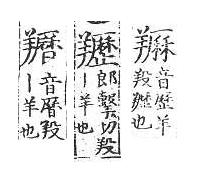 音歷羊
羖䍽也
䍽
郎擊切羖
丨羊也
音曆羖
丨羊也